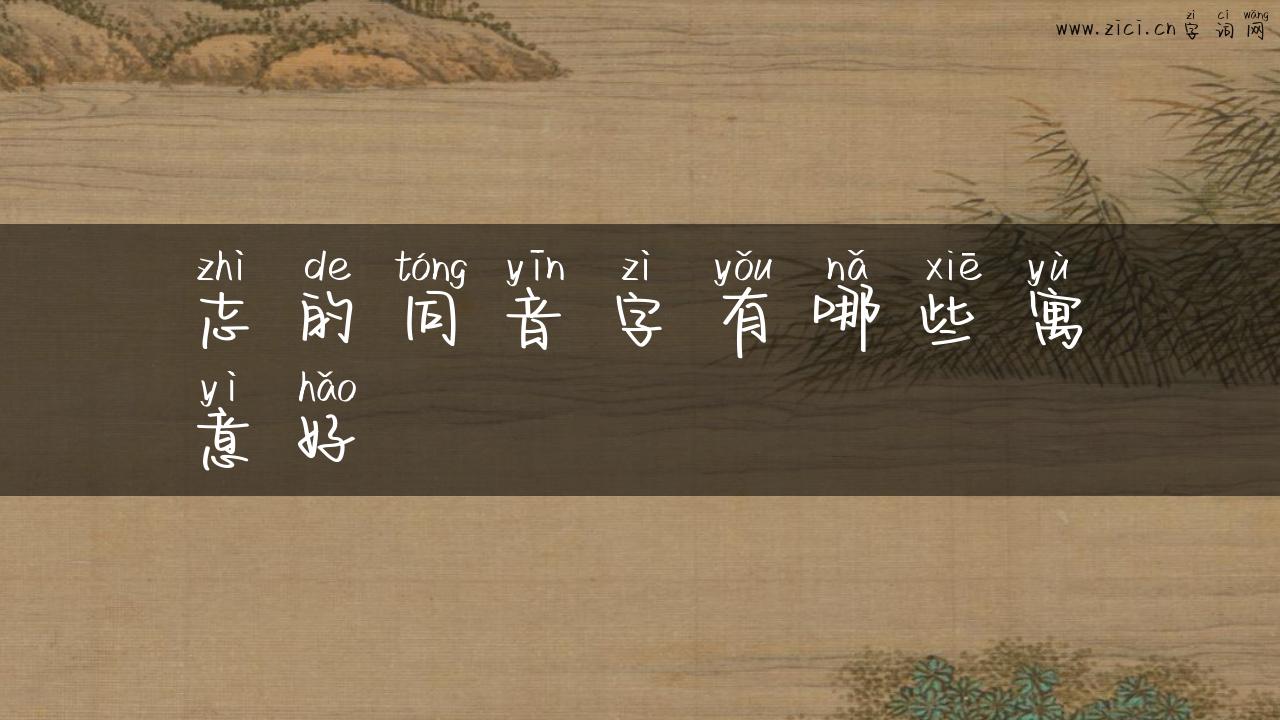 zì cí wǎng
www.zici.cn字词网
zhì de tóng yīn zì yǒu nǎ xiē yù
志的同音字有哪些寓
yì hǎo
意好